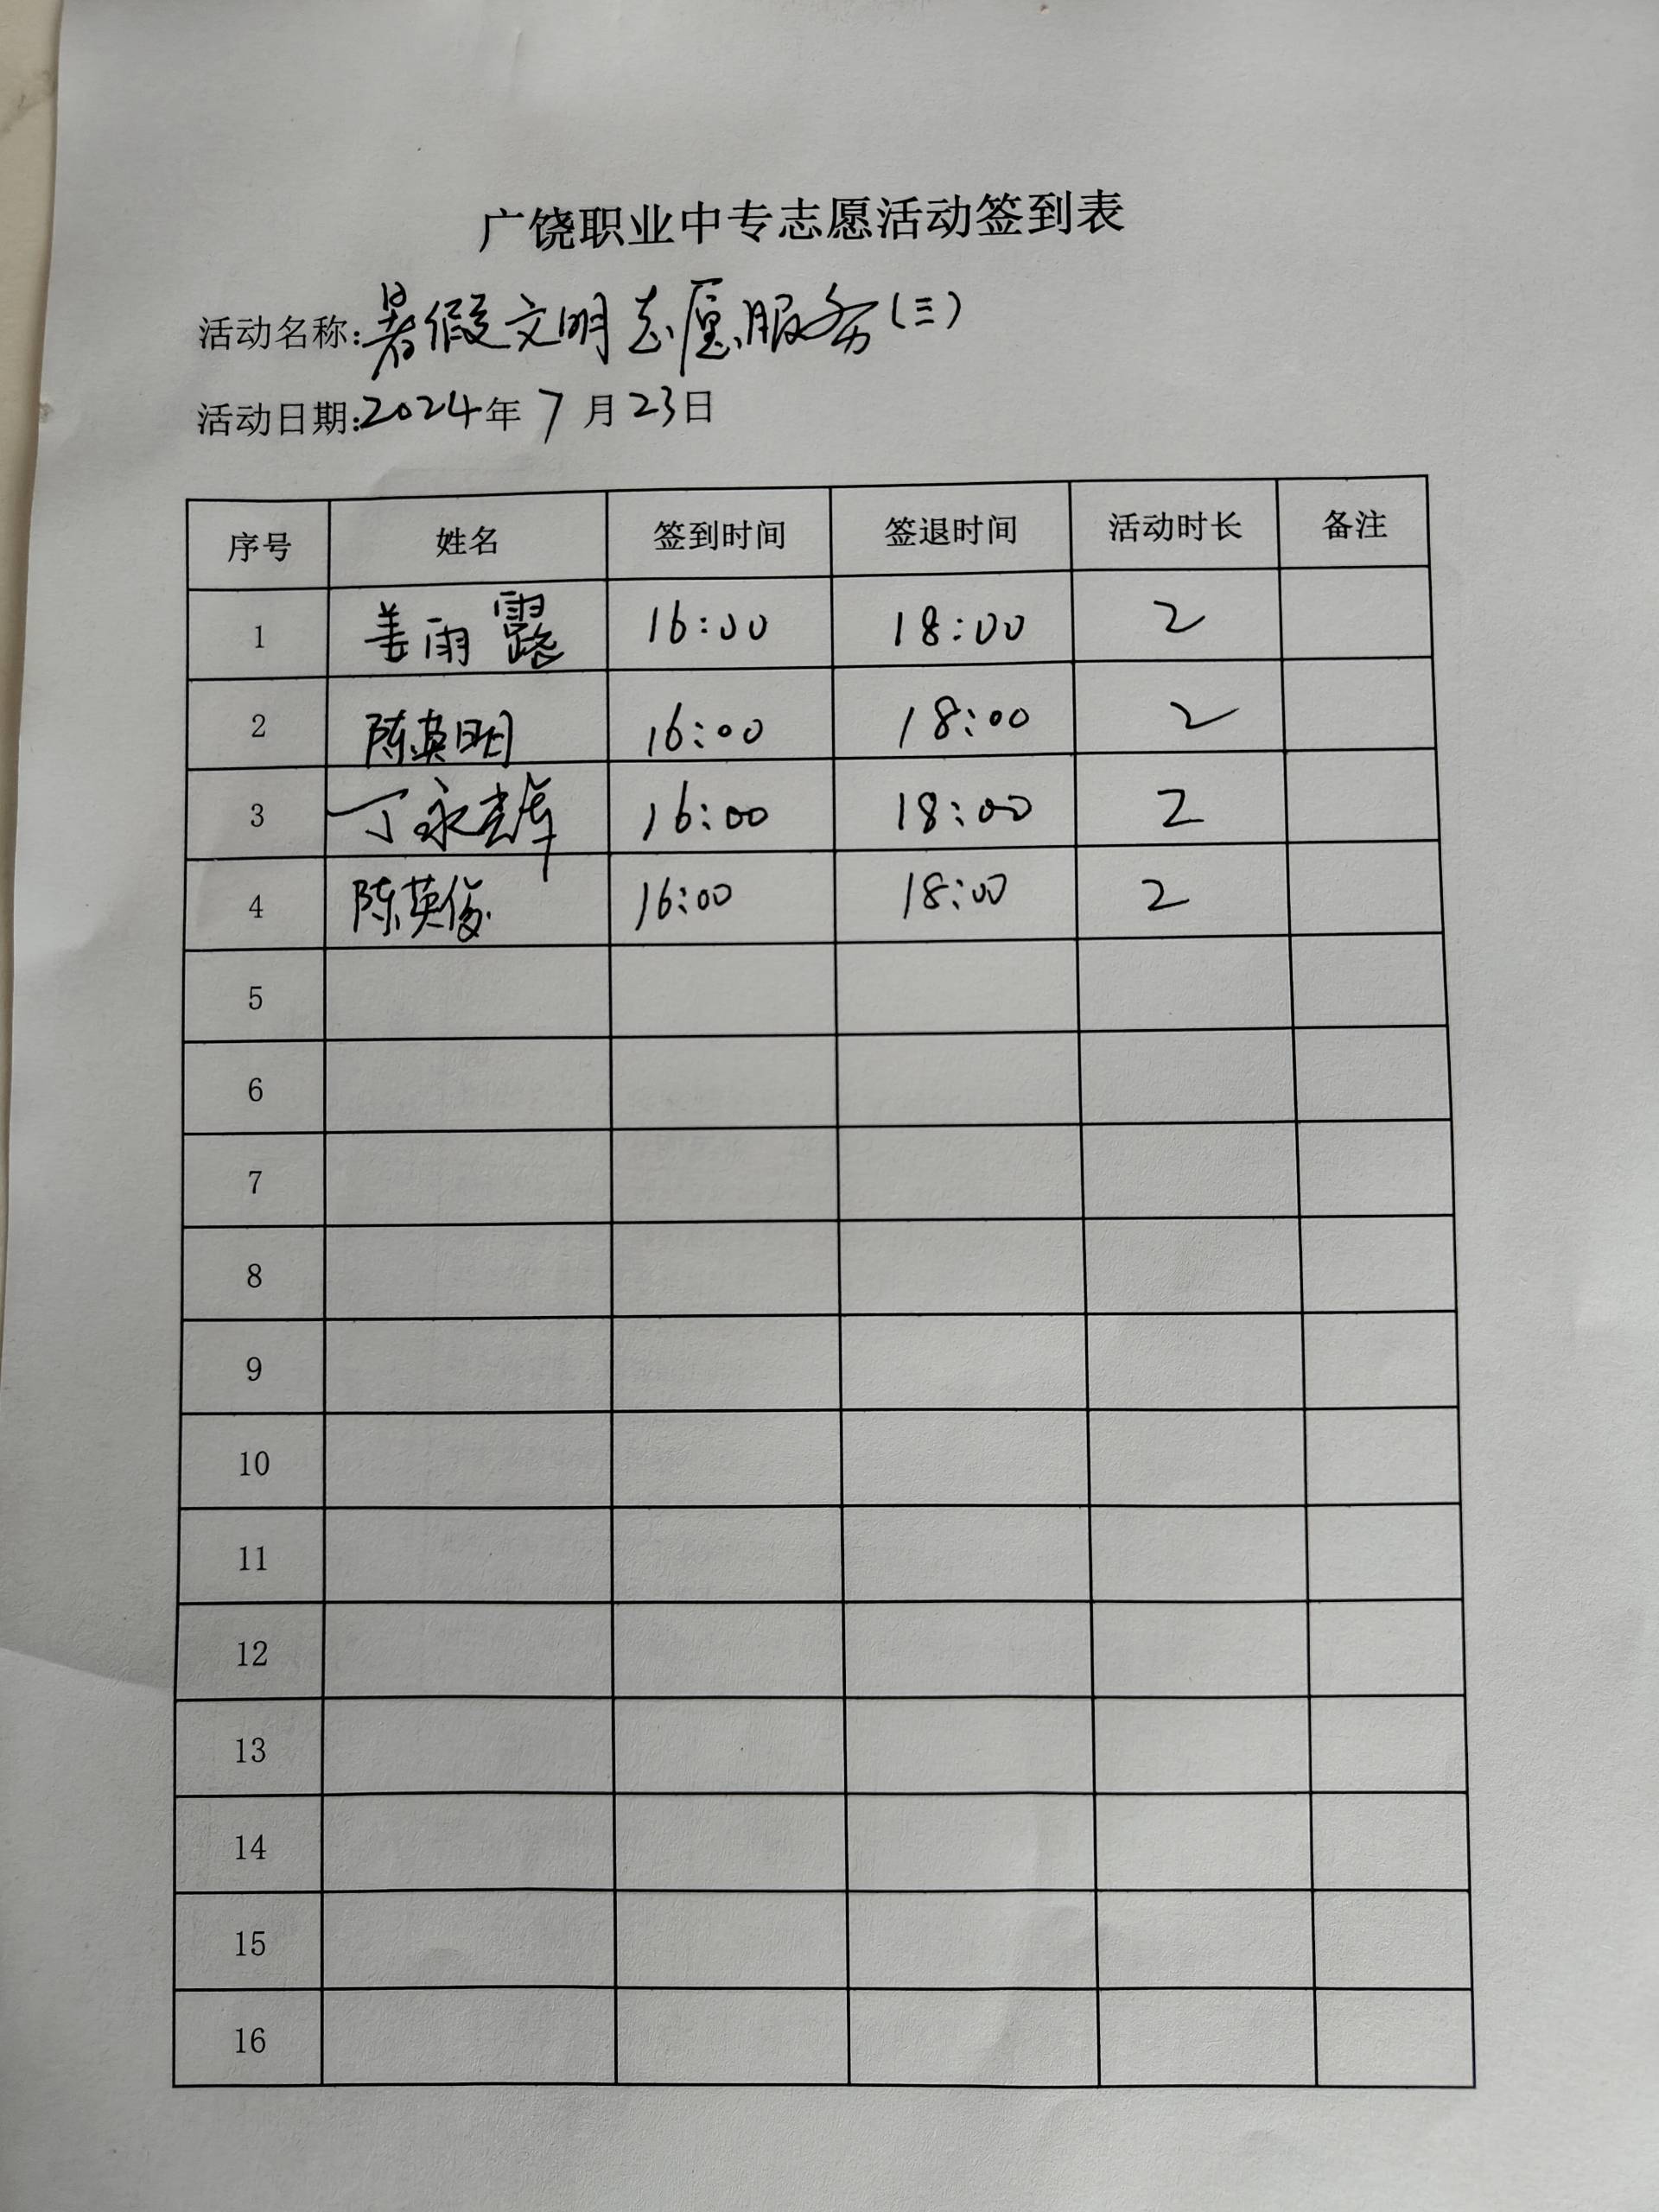 广饶职业中专志愿活动签到表
活动名称:暑假文明志愿服务(三)
活动日期:2024年 7 月 23日
序号 姓名 签到时间 签退时间 活动时长 备注
1 姜雨露 16:00 18:00 2
2 陈英明 16:00 18:00 2
3 丁永焯 16:00 18:00 2
4 陈英俊 16:00 18:00 2
5
6
7
8
9
10
11
12
13
14
15
16